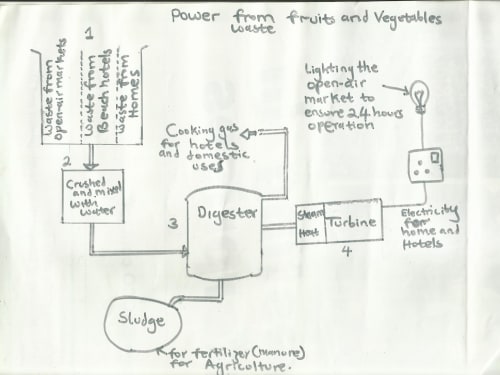 Power from fruits and Vegetables
waste
1
Waste from
open-air markets
Waste from
Beach hotels
Waste from
Homes
Lighting the
open-air
market to
ensure 24 hours
operation
Cooking gas
for hotels
and domestic
uses
2
Crushed
and mixed
with
water
3
Digester
Steam
Heat
Turbine
4
Electricity
for
home and
Hotels
Sludge
for fertilizer (manure)
for Agriculture.